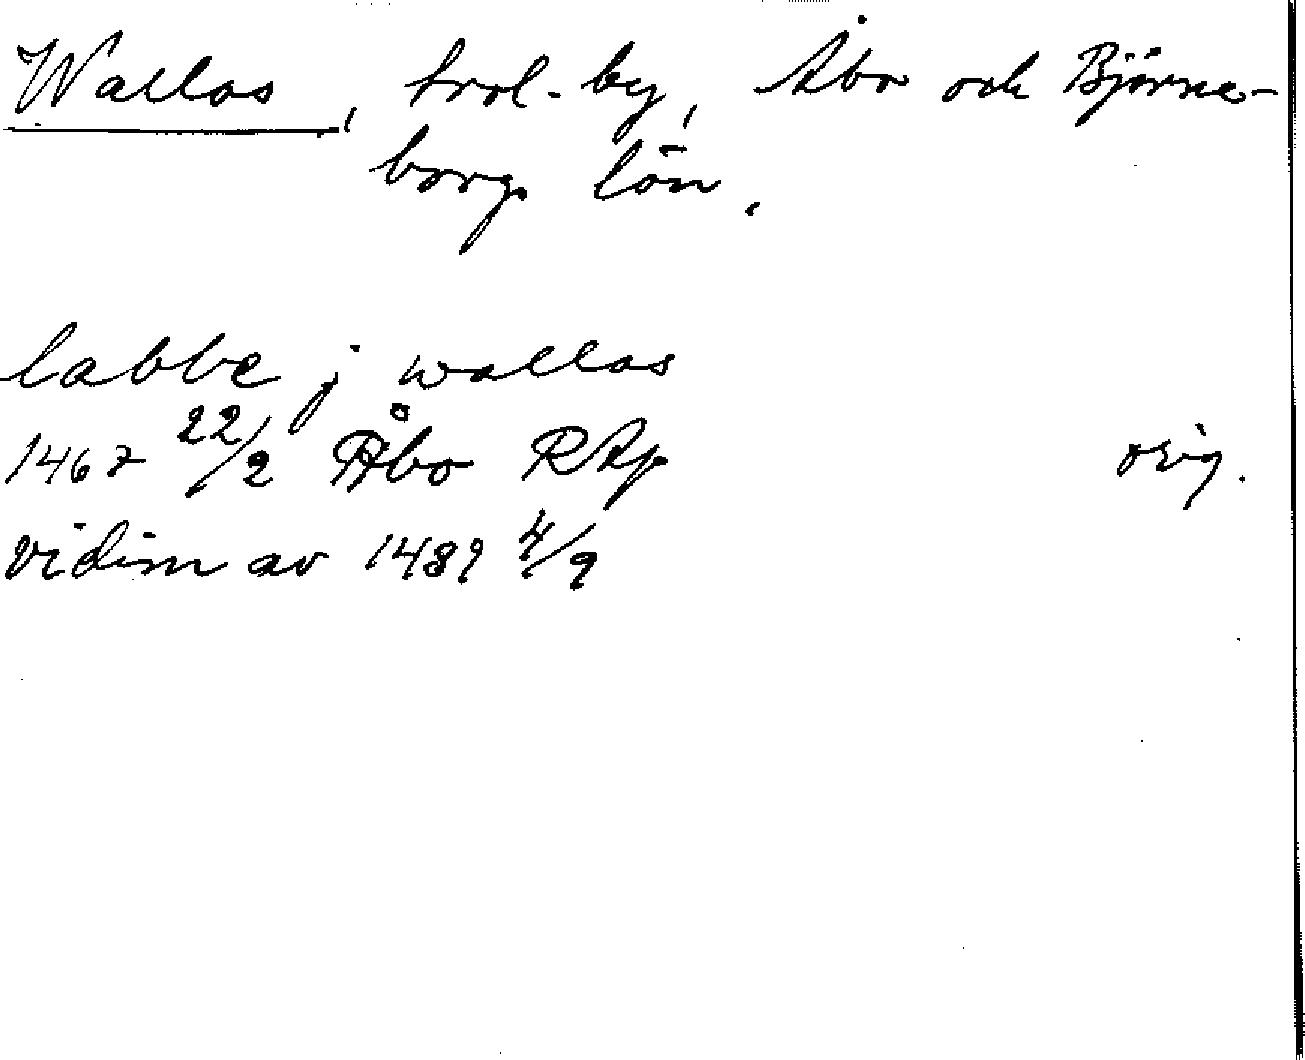 Wallas, trol. by, Åbo och Björne-
borgs län.
labbe j wallas
1467 22/2 Åbo RAp orig.
vidim av 1489 4/9